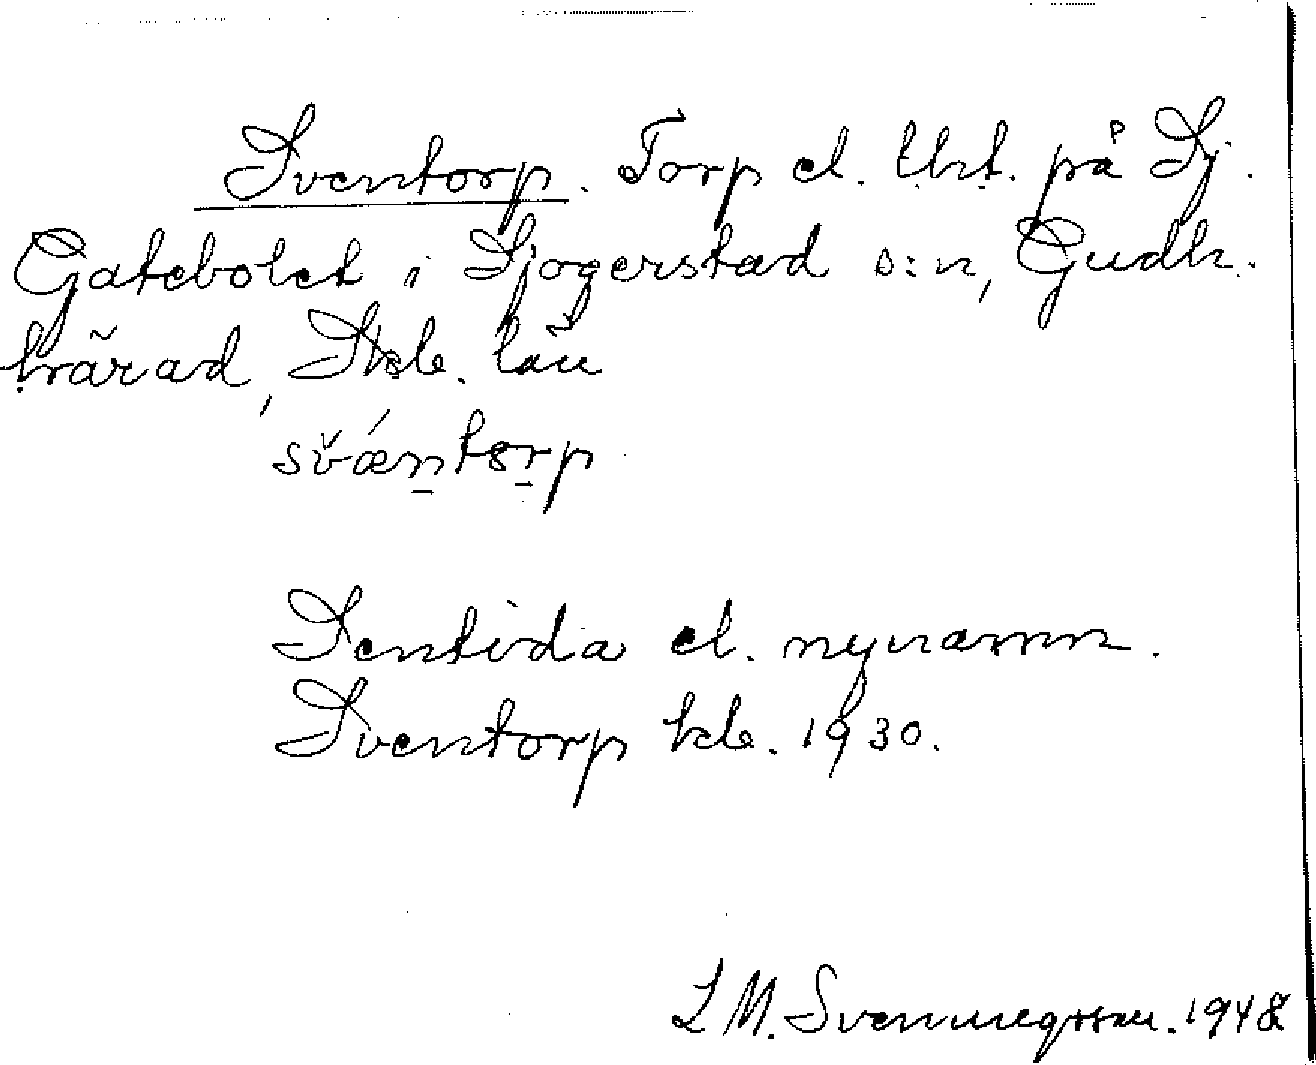 Sventorp. Torp el. lht. på Sj.
Gatebolet i Sjogerstad s:n, Gudh.
härad, Skb. län
svǽntorp
Sentida el. nynamn.
Sventorp kb. 1930.
L M. Svenungsson. 1948